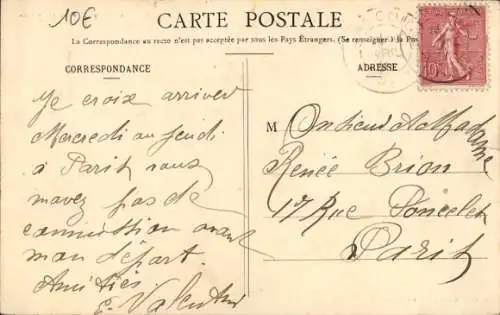 10€
CARTE POSTALE
La Correspondance au recto n'est pas acceptée par tous les Pays Étrangers. (Se renseigner à la Pos
CORRESPONDANCE
ADRESSE
Je croix arriver
Mercredi au jeudi
à Paris vous
mavez pas de
commission avant
mon départ.
Amitiés
E. Valentin
M Onsieur et Madame
Renée Brion
17 Rue Poncelet
Paris
10